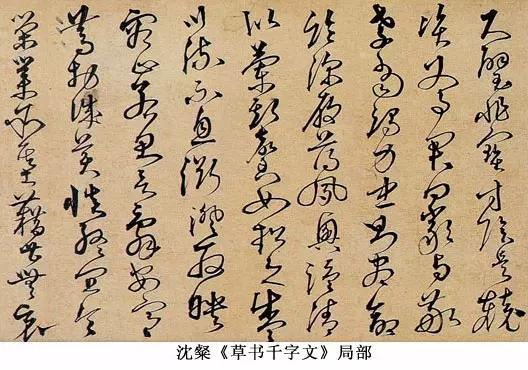 尺璧非寶寸陰是競
資父事君曰嚴與敬
孝當竭力忠則盡命
臨深履薄夙興溫凊
似蘭斯馨如松之盛
川流不息淵澄取映
容止若思言辭安定
篤初誠美慎終宜令
榮業所基籍甚無竟
沈粲《草书千字文》局部